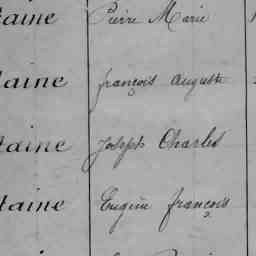 taine Pierre Marie
taine françois auguste
taine Joseph Charles
taine Eugène françois